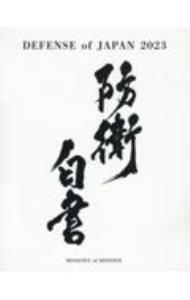 DEFENSE of JAPAN 2023
防衛
白書
MINISTRY of DEFENSE